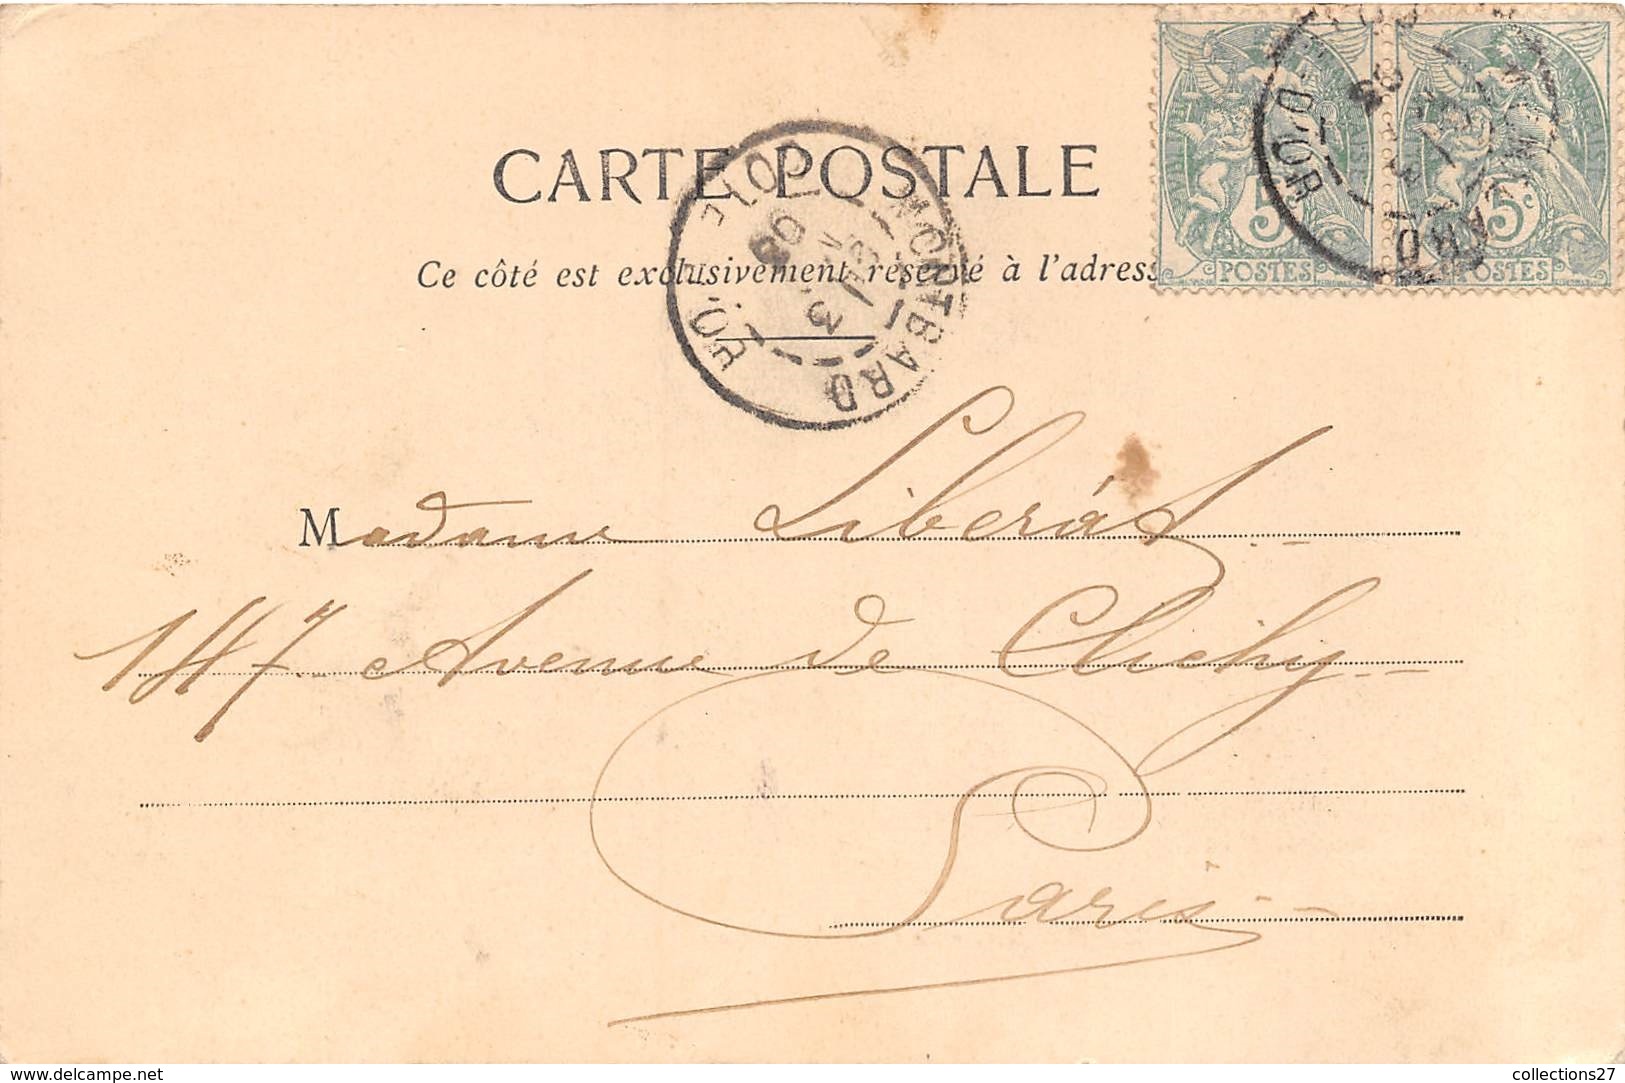 CARTE POSTALE
Ce côté est exclusivement réservé à l'adresse
MONTBARD
COTE D'OR
5c
POSTES
5c
POSTES
D'OR
Madame Libérat
147 Avenue de Clichy
Paris
www.delcampe.net
collections27